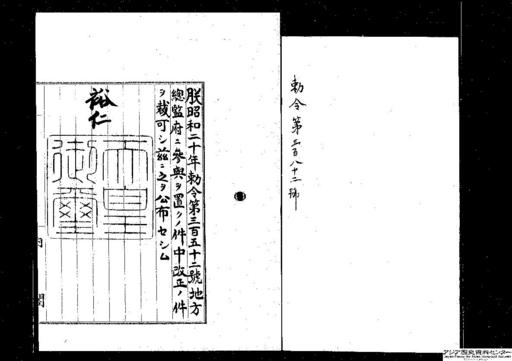 勅令第三百八十二號
朕昭和二十年勅令第三百五十二號地方
總監府ニ參與ヲ置クノ件中改正ノ件
ヲ裁可シ茲ニ之ヲ公布セシム
裕仁
天皇
御璽
アジア歴史資料センター